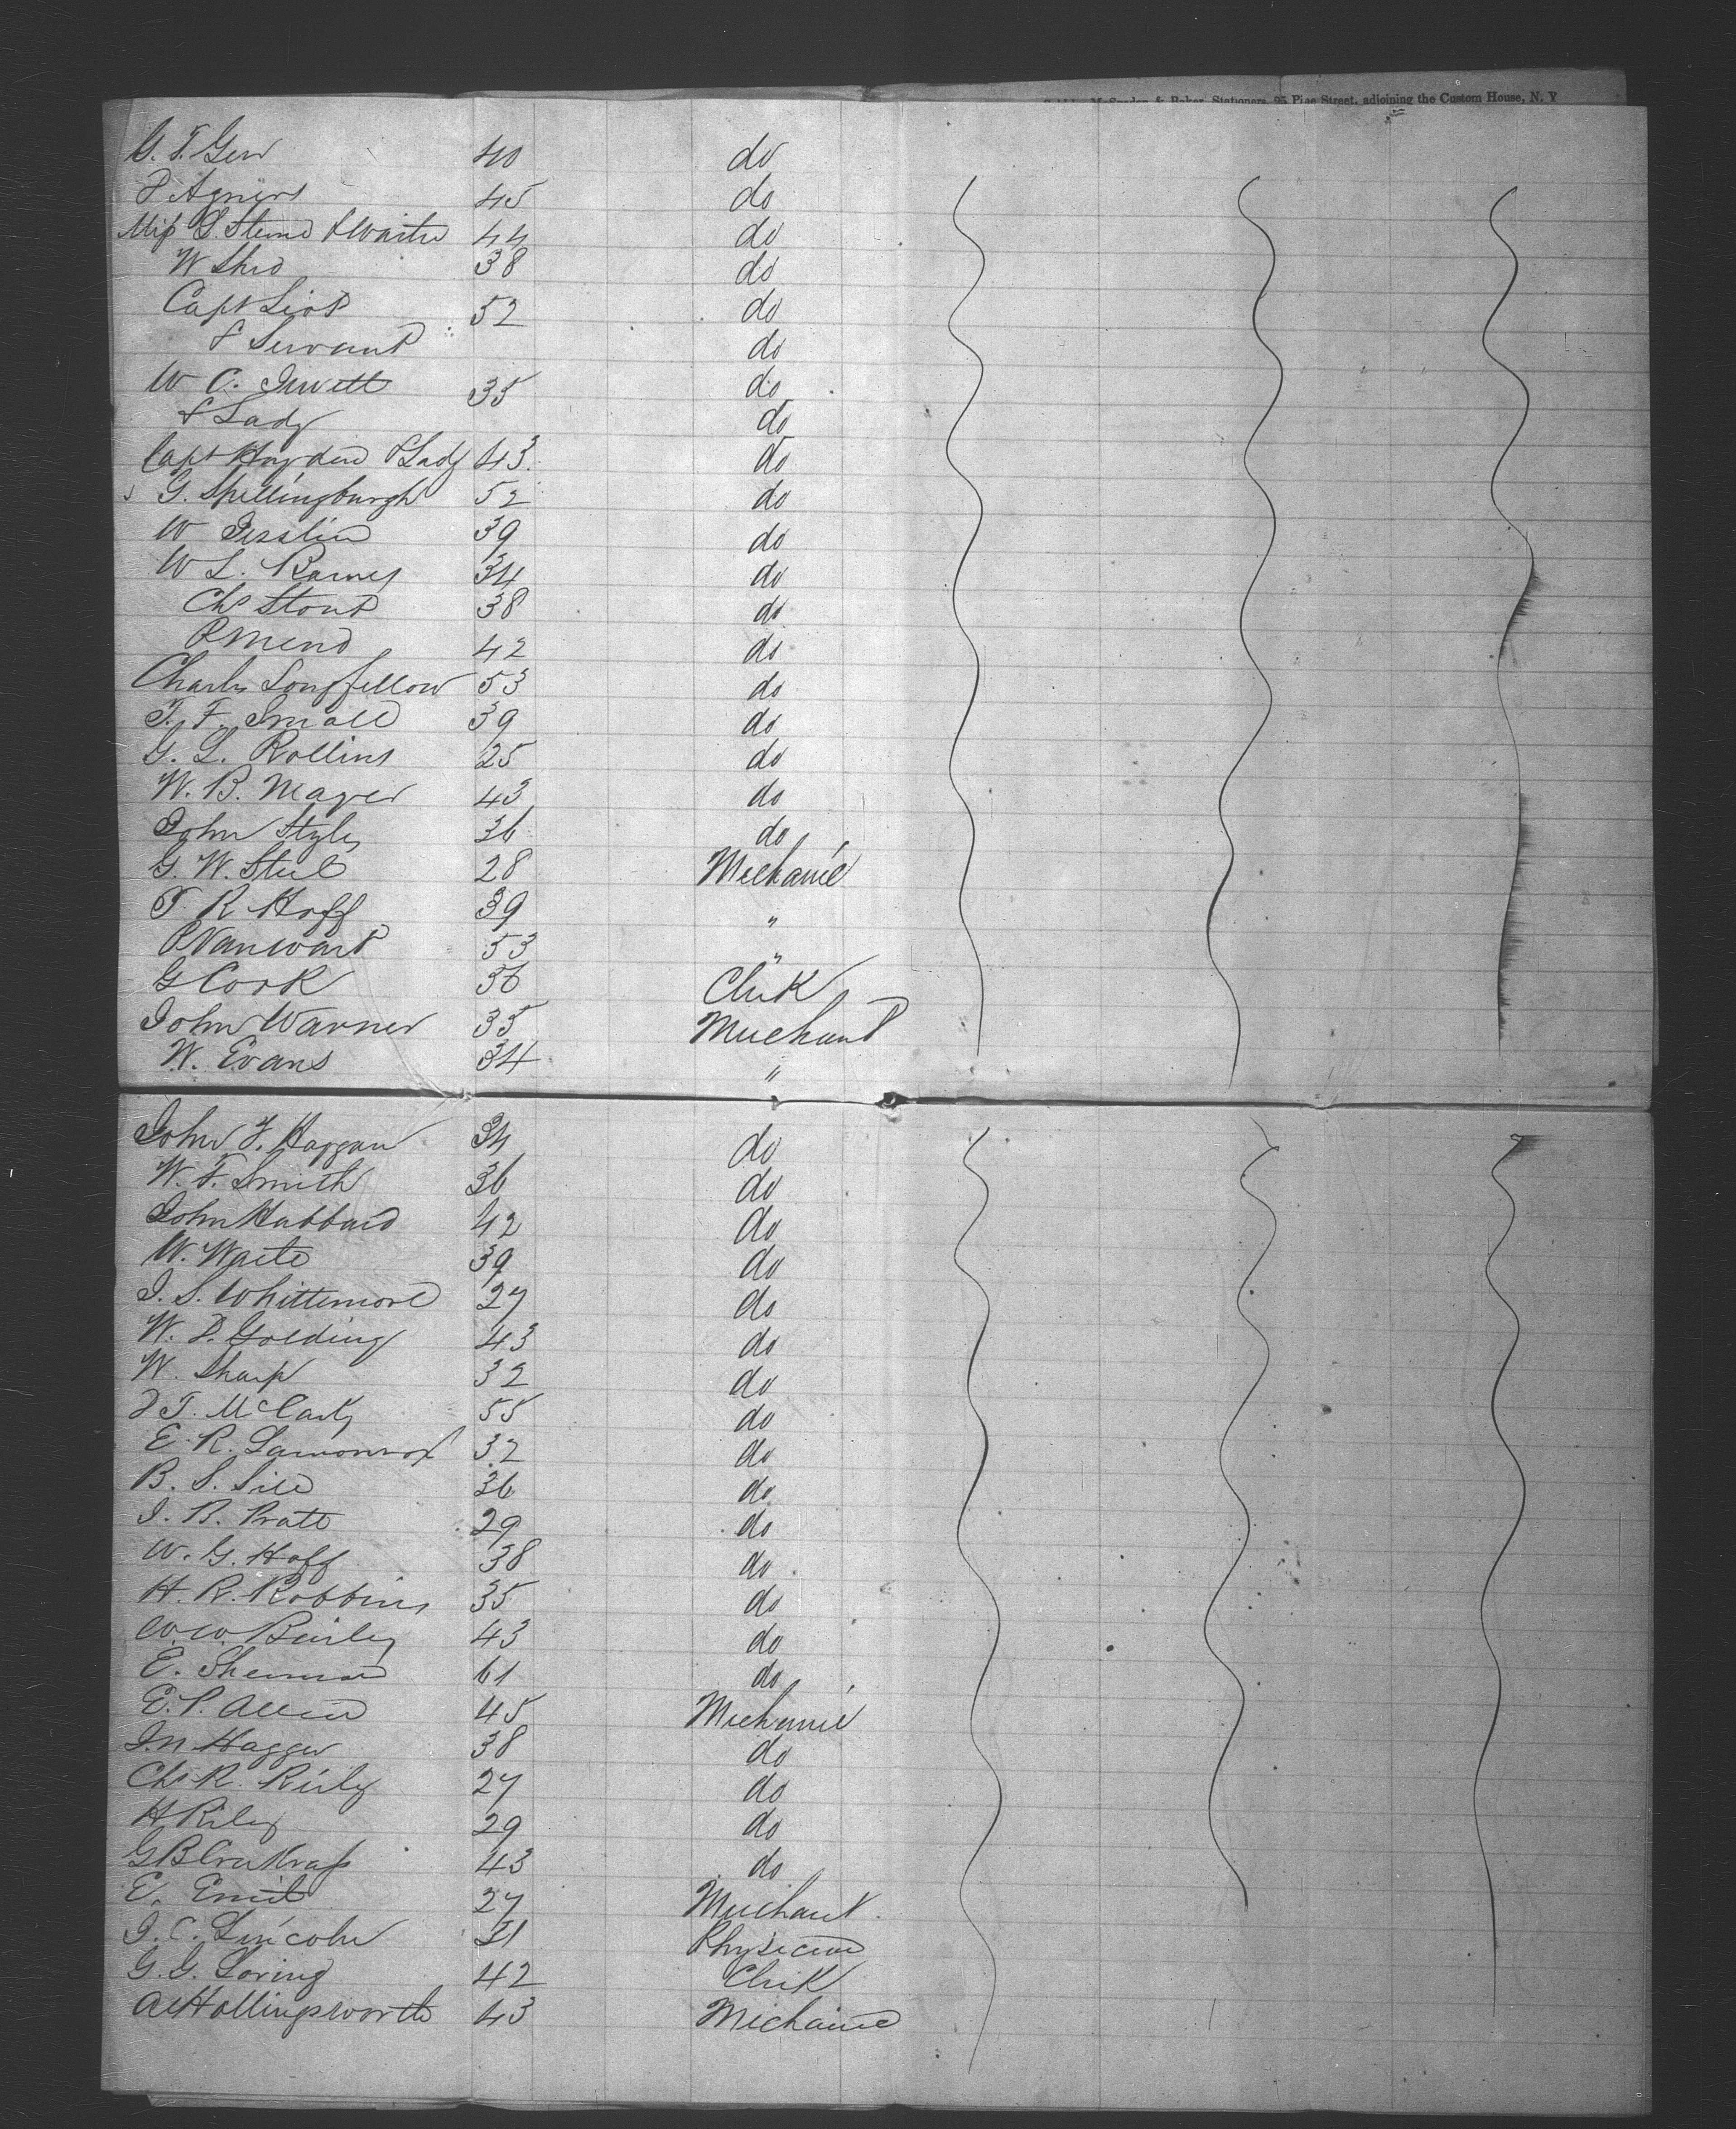 McSpedon & Baker, Stationers, 25 Pine Street, adjoining the Custom House, N. Y
G. T. Gen 40 do
Agners 45 do
Miss S. Stone & 44 do
W Shed 38 do
Capt Liot 52 do
& Servant do
W C. Jewett 35 do
& Lady do
Capt Hayden & Lady 43 do
G. Spellingburgh 52 do
W Josslin 39 do
W L. Barnes 34 do
Chs Stout 38 do
P Mend 42 do
Charles Longfellow 53 do
T. F. Small 39 do
G. L. Rollins 25 do
W. B. Mayer 43 do
John Styles 36 do
G. W. Steel 28 Mechanic
T. R Hoff 39 "
P Vanwart 53 "
G Cook 36 Clerk
John Warner 35 Merchant
W. Evans 34 "
John F. Haggan 34 do
W. F. Smith 36 do
John Habbard 42 do
W. Waite 39 do
J. S. Whittemore 27 do
W. D. Golding 43 do
W. Sharp 32 do
J T. McCarty 55 do
E. R. 32 do
B. S. Sill 36 do
J. B. Pratt 29 do
W. G. Hoff 38 do
H. R. Robbins 35 do
W. W. Bailey 43 do
E. Sherman 61 do
E. P. Allen 45 Mechanic
J. N. Hagger 38 do
Chs R. Rialy 27 do
H Riley 29 do
G B 43 do
E. Emil 27 Merchant
J. C. Lincoln 31 Physician
G. G. Loring 42 Clerk
A Hollingsworth 43 Mechanic